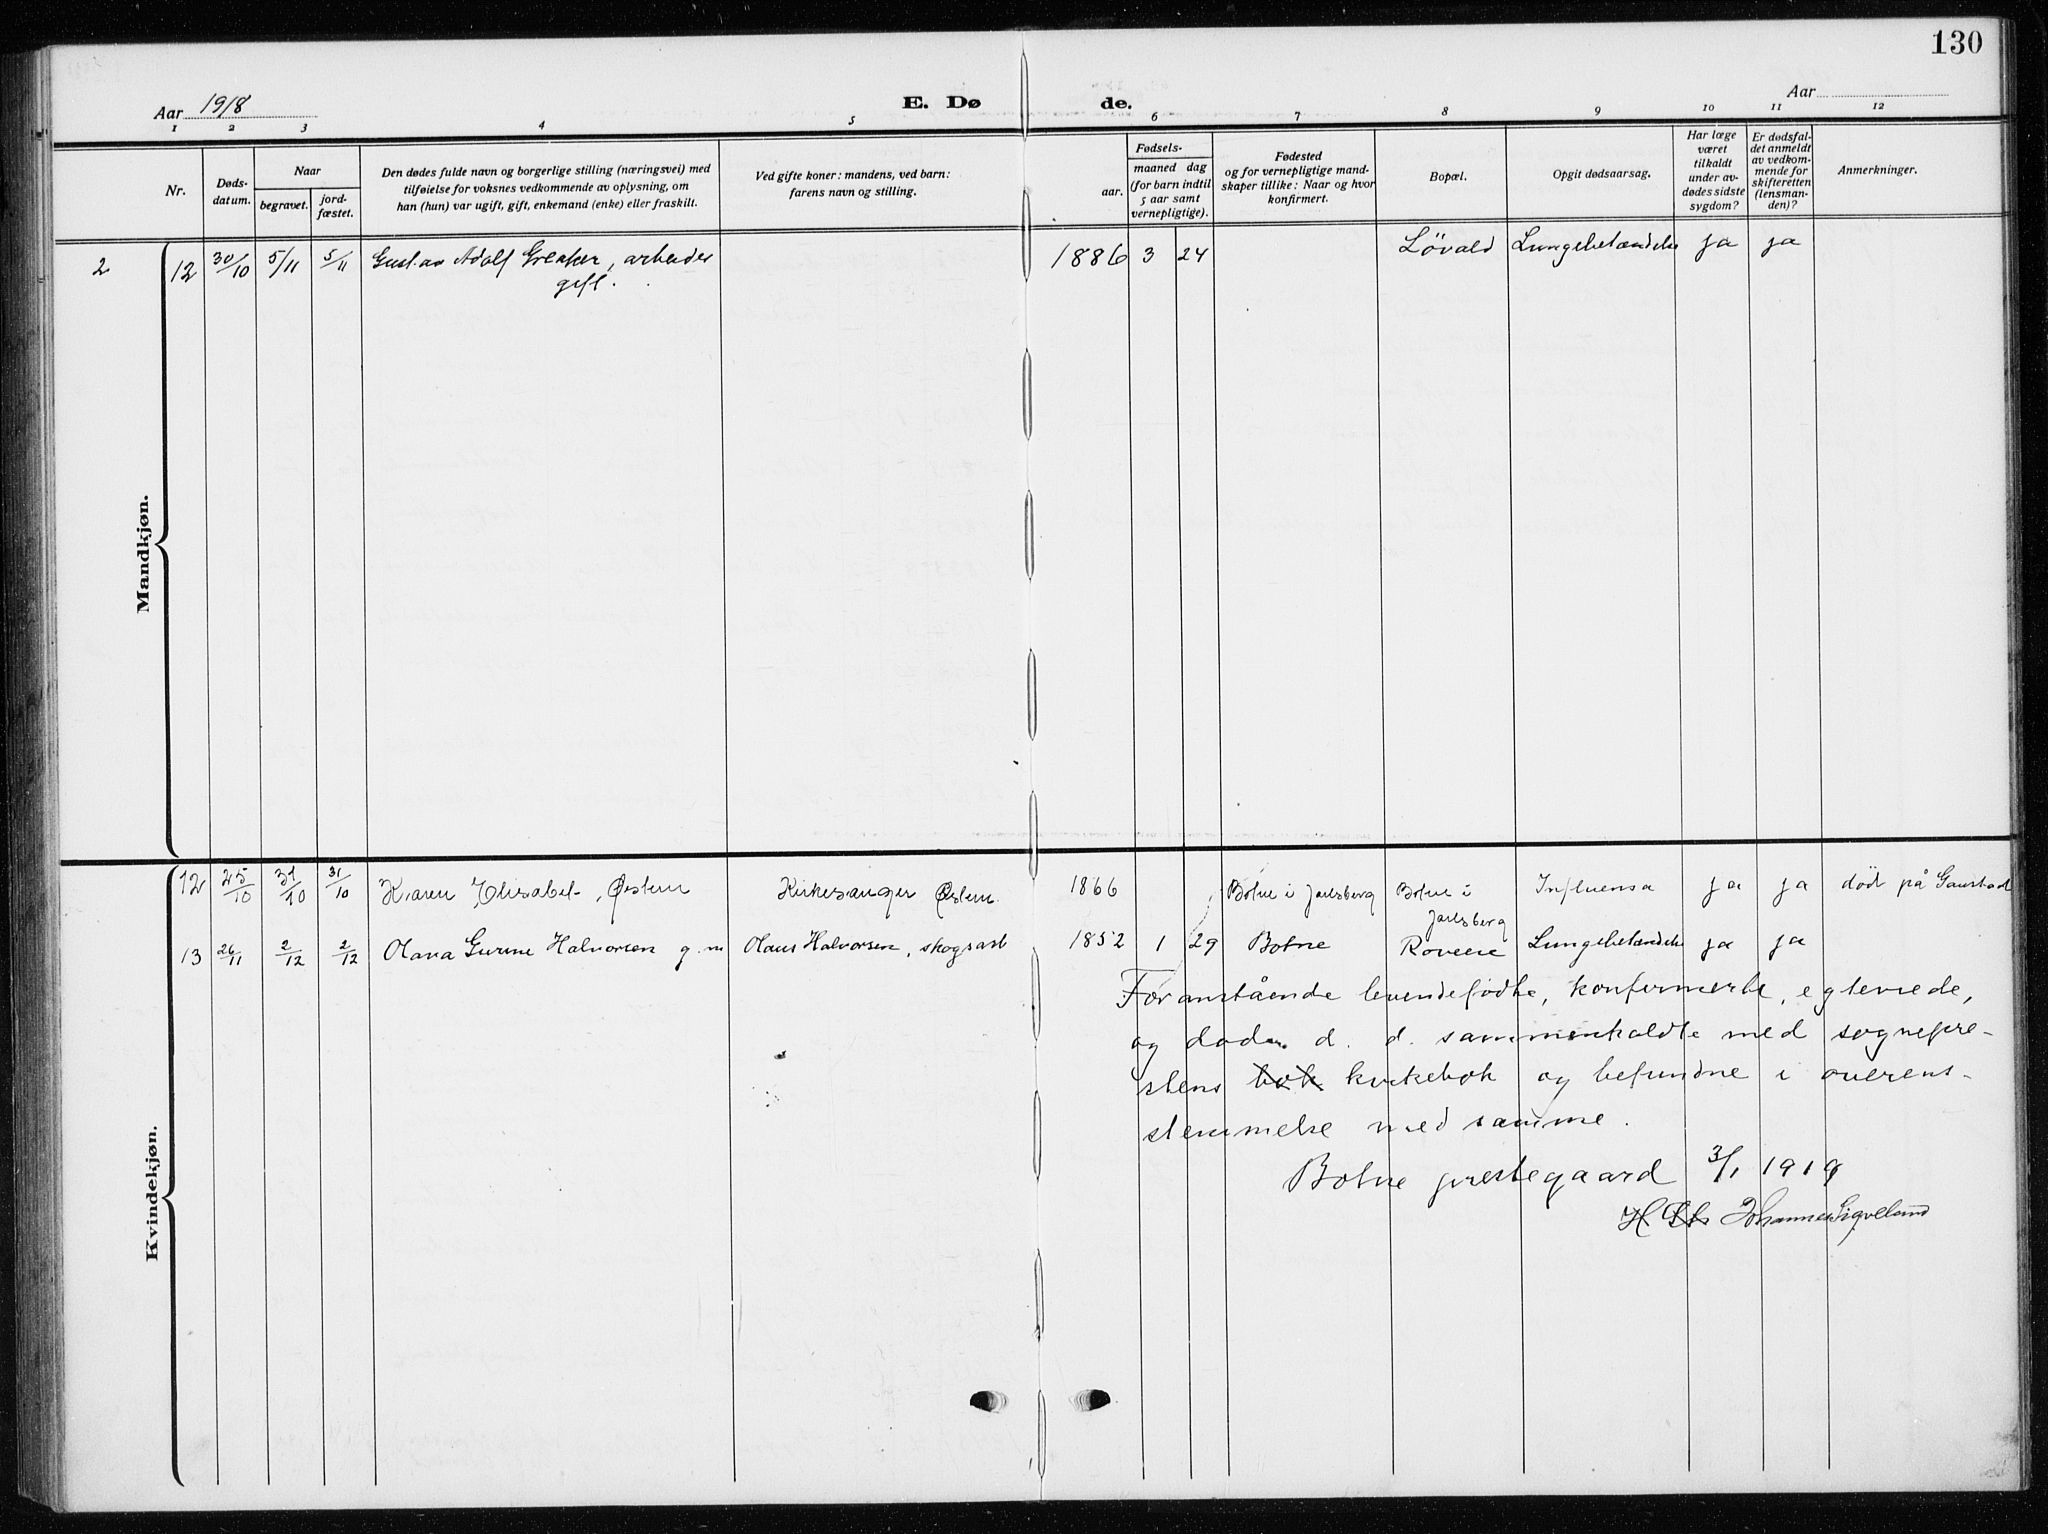 130
Aar 1918
E. Dø
de.
Aar
1 2 3 4 5 6 7 8 9 10 11 12
Nr.
Døds-
datum.
Naar
begravet.
jord-
fæstet.
Den dødes fulde navn og borgerlige stilling (næringsvei) med
tilføielse for voksnes vedkommende av oplysning, om
han (hun) var ugift, gift, enkemand (enke) eller fraskilt.
Ved gifte koner: mandens, ved barn:
farens navn og stilling.
Fødsels-
aar.
maaned dag
(for barn indtil
5 aar samt
vernepligtige).
Fødested
og for vernepligtige mand-
skaper tillike: Naar og hvor
konfirmert.
Bopæl.
Opgit dødsaarsag.
Har læge
været
tilkaldt
under av-
dødes sidste
sygdom?
Er dødsfal-
det anmeldt
av vedkom-
mende for
skifteretten
(lensman-
den)?
Anmerkninger.
Mandkjøn.
2 12 30/10 5/11 5/11 Gustav Adolf Greaker, arbeider 1886 3 24 Løvald Lungebetændelse ja ja
gift.
Kvindekjøn.
12 25/10 31/10 31/10 Karen Elisabet Østern Kirkesanger Østern. 1866 Botne i Jarlsberg Botne i Influensa ja ja død på Gaustad
Jarlsberg
13 26/11 2/12 2/12 Olava Gurine Halvorsen g. m Olaus Halvorsen, skogsarb 1852 1 29 Botne Røveie Lungebetændelse ja ja
Foranstående levendefødte, konfirmerte, egteviede,
og døde d. d. sammenholdte med sognepre-
stens bok kirkebok og befundne i overens-
stemmelse med samme.
Botne prestegaard 3/1 1919
Johannes Sigveland